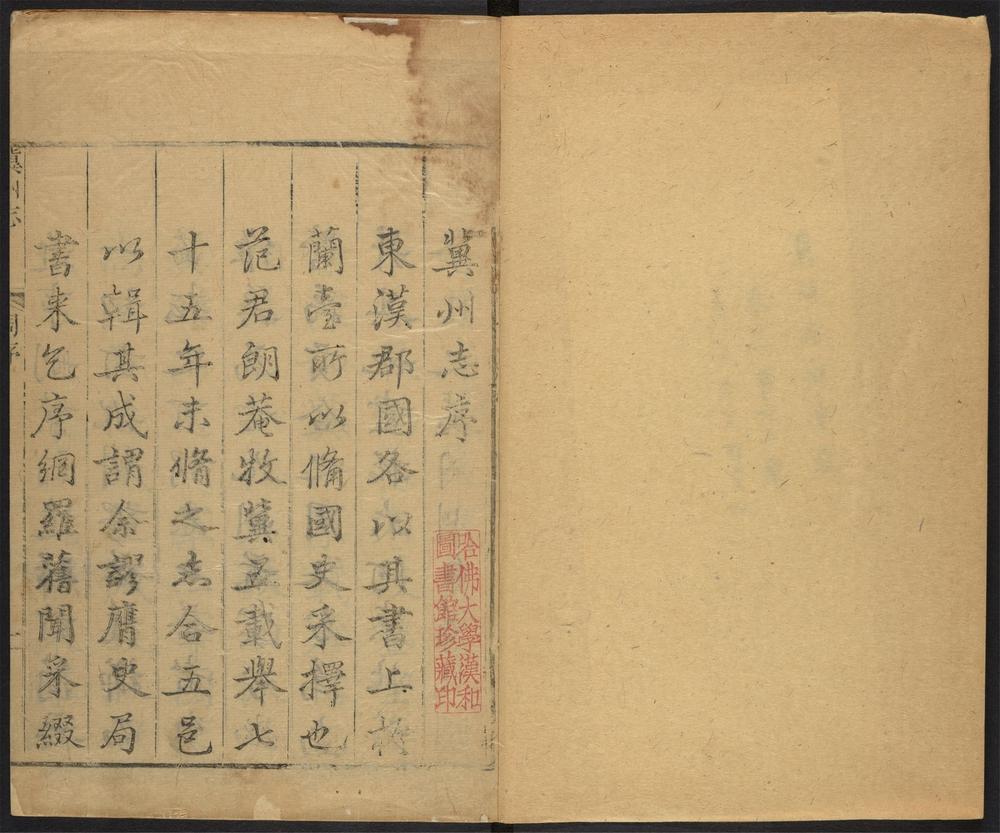 冀州志序
東漢郡國各以其書上於
蘭臺所以脩國史采擇也
范君朗菴牧冀五載舉七
十五年未脩之志合五邑
以輯其成謂余謬膺史局
書来乞序網羅舊聞采綴
哈佛大學漢和
圖書館珍藏印
冀州志